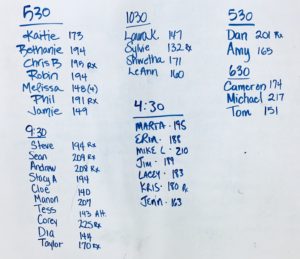 530
Kaitie 173
Bethanie 194
Chris B 195 Rx
Robin 194
Melissa 148(4)
Phil 191 Rx
Jamie 149
9:30
Steve 194 Rx
Sean 209 Rx
Andrew 208 Rx
Stacy A 194
Cloe 140
Manon 207
Tess 143 Alt.
Corey 225 Rx
Dia 144
Taylor 170 Rx
1030
Laura K 147
Sylvie 132 Rx
Shwetha 171
LeAnn 160
4:30
MARTA - 195
ERIN - 188
MIKE L - 210
Jim - 189
LACEY - 183
KRIS - 180 Rx
JENN - 163
530
Dan 201 Rx
Amy 165
630
Cameron 174
Michael 217
Tom 151